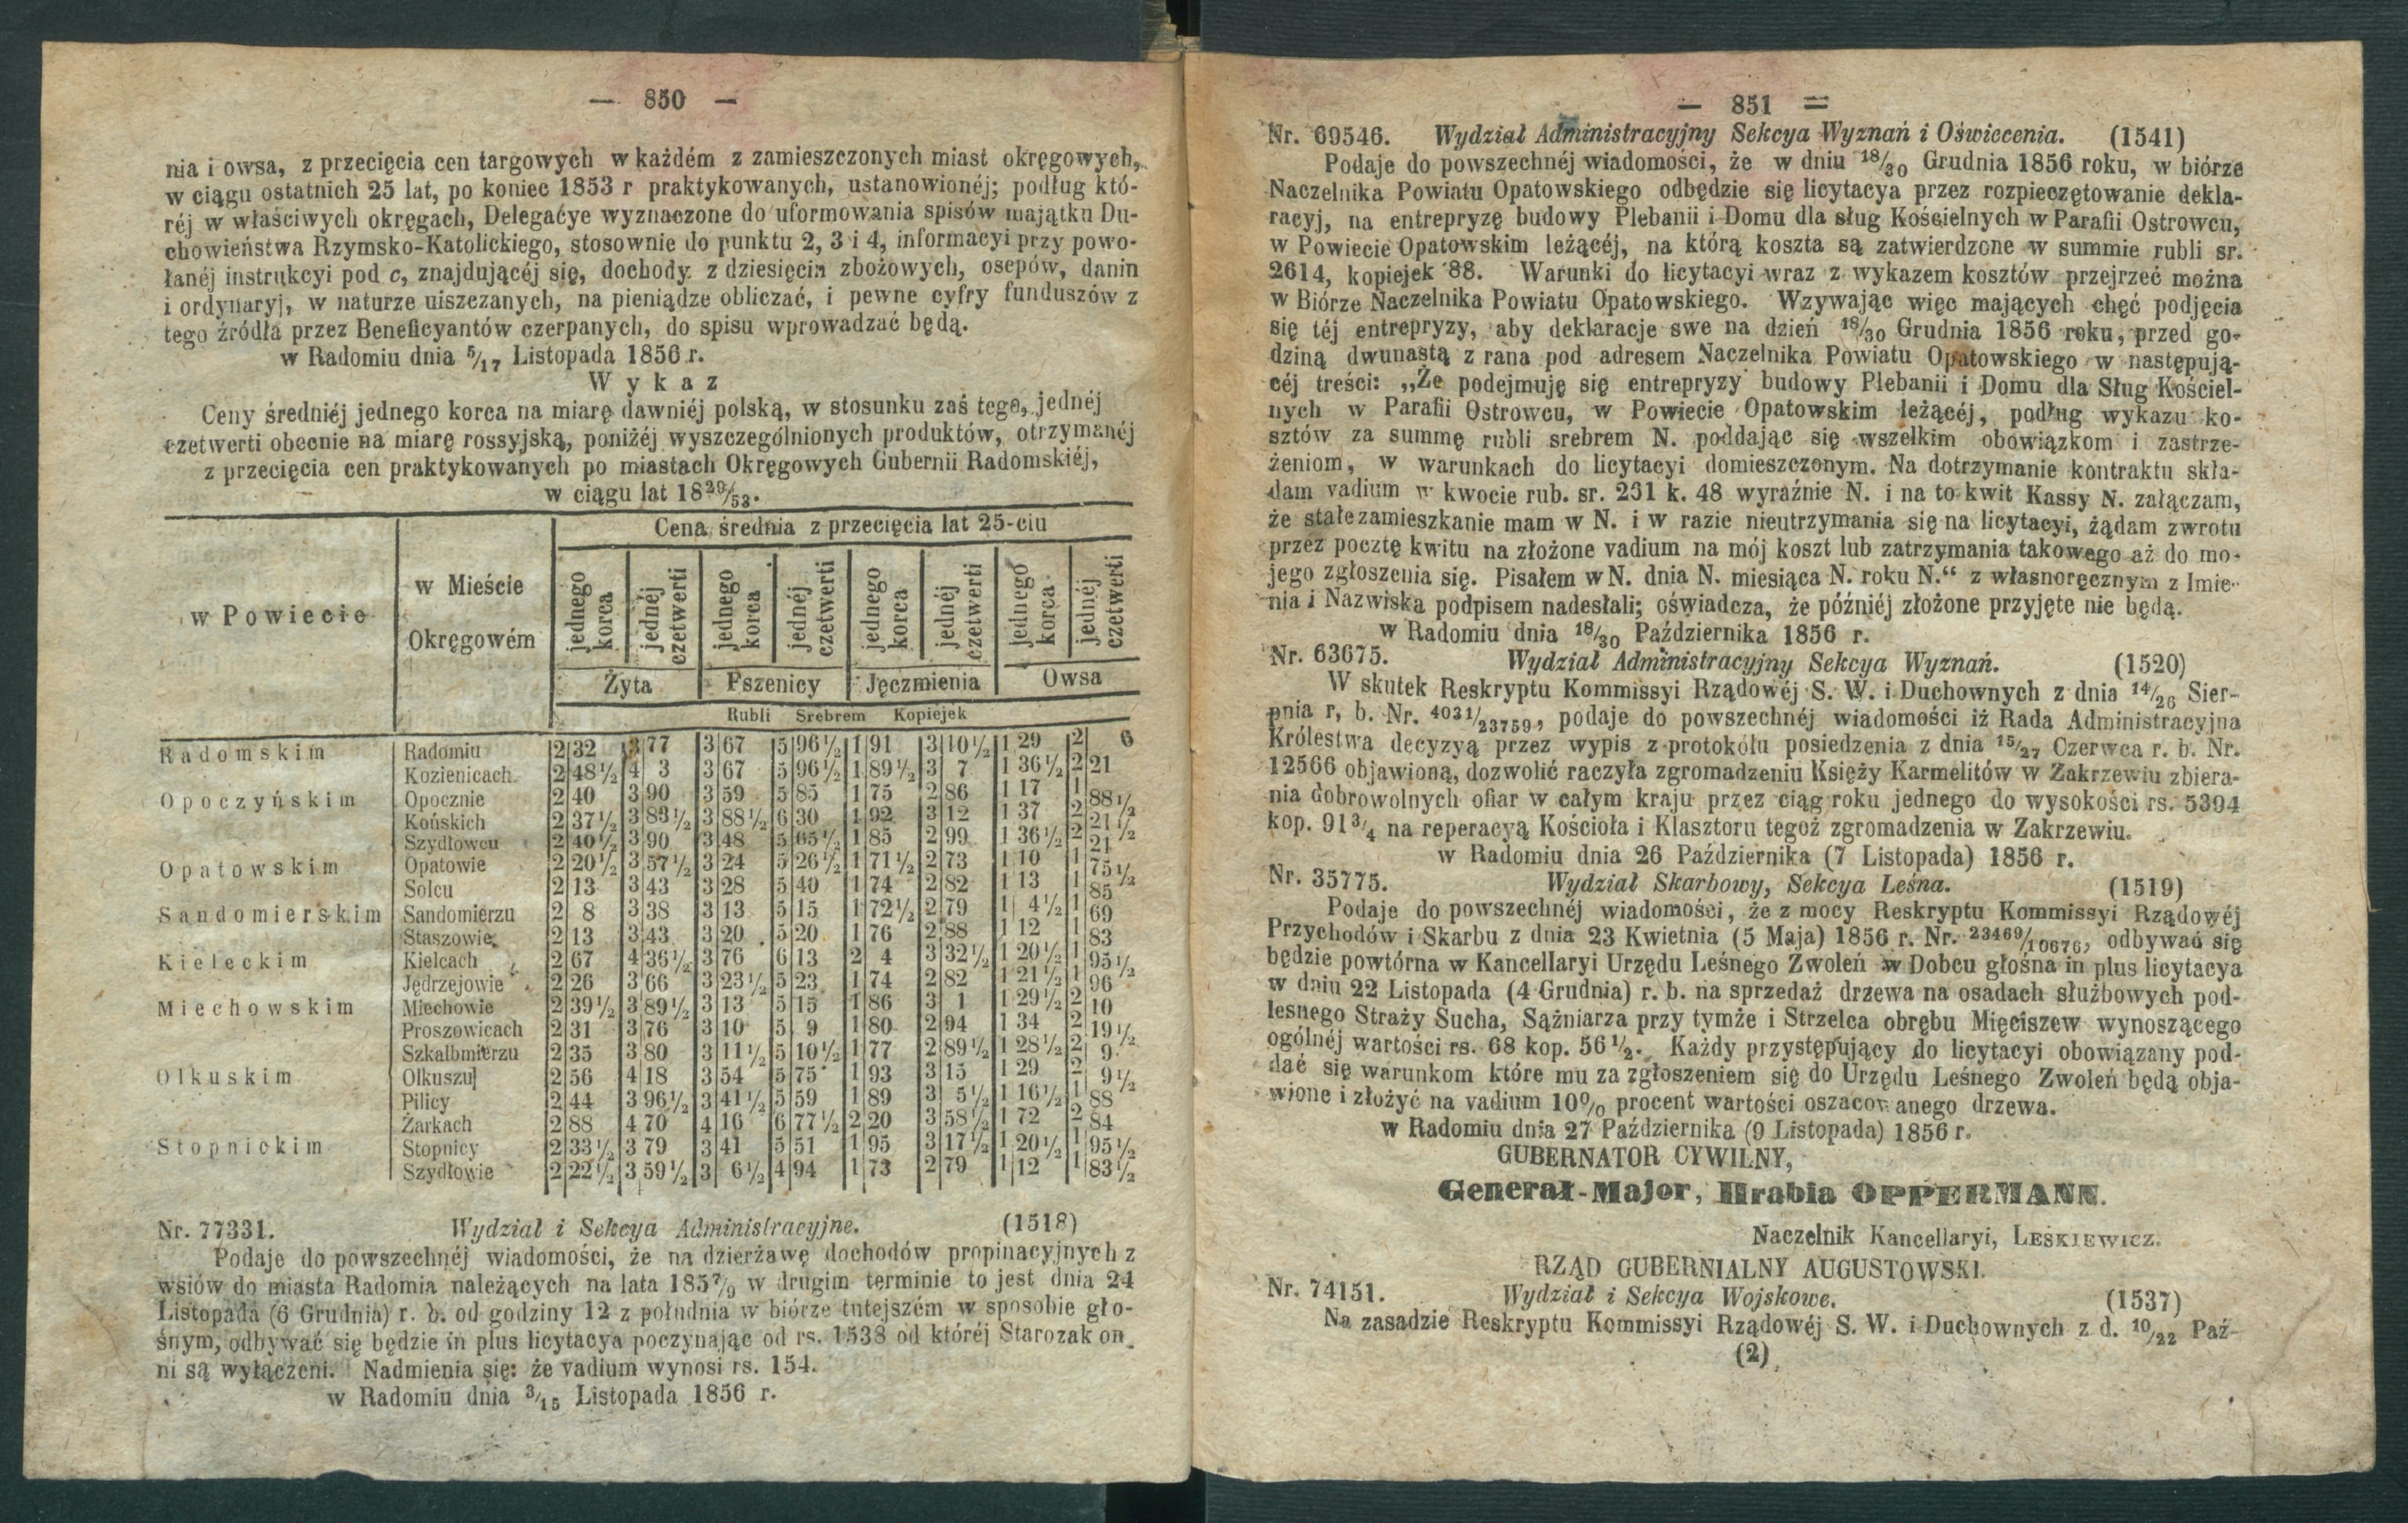 — 850 —
nia i owsa, z przecięcia cen targowych w każdém z zamieszczonych miast okręgowych,
w ciągu ostatnich 25 lat, po koniec 1853 r praktykowanych, ustanowionéj; podług któ-
réj w właściwych okręgach, Delegacye wyznaczone do uformowania spisów majątku Du-
chowieństwa Rzymsko-Katolickiego, stosownie do punktu 2, 3 i 4, informacyi przy powo-
łanéj instrukcyi pod c, znajdującéj się, dochody z dziesięcin zbożowych, osepów, danin
i ordynaryj, w naturze uiszczanych, na pieniądze obliczać, i pewne cyfry funduszów z
tego źródła przez Beneficyantów czerpanych, do spisu wprowadzać będą.
w Radomiu dnia 5/17 Listopada 1856 r.
Wykaz
Ceny średniéj jednego korca na miarę dawniéj polską, w stosunku zaś tego, jednéj
czetwerti obecnie na miarę rossyjską, poniżéj wyszczególnionych produktów, otrzymanéj
z przecięcia cen praktykowanych po miastach Okręgowych Gubernii Radomskiéj,
w ciągu lat 1829/53.
w Powiecie | w Mieście Okręgowém | Cena średnia z przecięcia lat 25-ciu
jednego korca | jednéj czetwerti | jednego korca | jednéj czetwerti | jednego korca | jednéj czetwerti | jednego korca | jednéj czetwerti
Żyta | Pszenicy | Jęczmienia | Owsa
Rubli Srebrem Kopiejek
Radomskim | Radomiu | 2 32 | 3 77 | 3 67 | 5 96½ | 1 91 | 3 10½ | 1 29 | 2 6
Kozienicach | 2 48½ | 4 3 | 3 67 | 5 96½ | 1 89½ | 3 7 | 1 36½ | 2 21
Opoczyńskim | Opocznie | 2 40 | 3 90 | 3 59 | 5 85 | 1 75 | 2 86 | 1 17 | 1 88½
Końskich | 2 37½ | 3 83½ | 3 88½ | 6 30 | 1 92 | 3 12 | 1 37 | 2 21½
Szydłowcu | 2 40½ | 3 90 | 3 48 | 5 65½ | 1 85 | 2 99 | 1 36½ | 2 21
Opatowskim | Opatowie | 2 20½ | 3 57½ | 3 24 | 5 26½ | 1 71½ | 2 73 | 1 10 | 1 75½
Solcu | 2 13 | 3 43 | 3 28 | 5 40 | 1 74 | 2 82 | 1 13 | 1 85
Sandomierskim | Sandomierzu | 2 8 | 3 38 | 3 13 | 5 15 | 1 72½ | 2 79 | 1 4½ | 1 69
Staszowie | 2 13 | 3 43 | 3 20 | 5 20 | 1 76 | 2 88 | 1 12 | 1 83
Kieleckim | Kielcach | 2 67 | 4 36½ | 3 76 | 6 13 | 2 4 | 3 32½ | 1 20½ | 1 95½
Jędrzejowie | 2 26 | 3 66 | 3 23½ | 5 23 | 1 74 | 2 82 | 1 21½ | 1 96
Miechowskim | Miechowie | 2 39½ | 3 89½ | 3 13 | 5 15 | 1 86 | 3 1 | 1 29½ | 2 10
Proszowicach | 2 31 | 3 76 | 3 10 | 5 9 | 1 80 | 2 94 | 1 34 | 2 19½
Szkalbmierzu | 2 35 | 3 80 | 3 11½ | 5 10½ | 1 77 | 2 89½ | 1 28½ | 2 9
Olkuskim | Olkuszu | 2 56 | 4 18 | 3 54 | 5 75 | 1 93 | 3 15 | 1 29 | 2 9½
Pilicy | 2 44 | 3 96½ | 3 41½ | 5 59 | 1 89 | 3 5½ | 1 16½ | 1 88
Żarkach | 2 88 | 4 70 | 4 16 | 6 77½ | 2 20 | 3 58½ | 1 72 | 2 84
Stopnickim | Stopnicy | 2 33½ | 3 79 | 3 41 | 5 51 | 1 95 | 3 17½ | 1 20½ | 1 95½
Szydłowie | 2 22½ | 3 59½ | 3 6½ | 4 94 | 1 73 | 2 79 | 1 12 | 1 83½
Nr. 77331. Wydział i Sekcya Administracyjne. (1518)
Podaje do powszechnéj wiadomości, że na dzierżawę dochodów propinacyjnych z
wsiów do miasta Radomia należących na lata 1857/9 w drugim terminie to jest dnia 24
Listopada (6 Grudnia) r. b. od godziny 12 z południa w biórze tutejszém w sposobie gło-
śnym, odbywać się będzie in plus licytacya poczynając od rs. 1538 od któréj Starozakon_
ni są wyłączeni. Nadmienia się: że vadium wynosi rs. 154.
w Radomiu dnia 3/15 Listopada 1856 r.
— 851 =
Nr. 69546. Wydział Administracyjny Sekcya Wyznań i Oświecenia. (1541)
Podaje do powszechnéj wiadomości, że w dniu 18/30 Grudnia 1856 roku, w biórze
Naczelnika Powiatu Opatowskiego odbędzie się licytacya przez rozpieczętowanie dekla-
racyj, na entrepryzę budowy Plebanii i Domu dla sług Kościelnych w Parafii Ostrowcu,
w Powiecie Opatowskim leżącéj, na którą koszta są zatwierdzone w summie rubli sr.
2614, kopiejek 88. Warunki do licytacyi wraz z wykazem kosztów przejrzeć można
w Biórze Naczelnika Powiatu Opatowskiego. Wzywając więc mających chęć podjęcia
się téj entrepryzy, aby deklaracje swe na dzień 18/30 Grudnia 1856 roku, przed go-
dziną dwunastą z rana pod adresem Naczelnika Powiatu Opatowskiego w następują-
céj treści: „Że podejmuję się entrepryzy budowy Plebanii i Domu dla Sług Kościel-
nych w Parafii Ostrowcu, w Powiecie Opatowskim leżącéj, podług wykazu ko-
sztów za summę rubli srebrem N. poddając się wszelkim obowiązkom i zastrze-
żeniom, w warunkach do licytacyi domieszczonym. Na dotrzymanie kontraktu skła-
dam vadium w kwocie rub. sr. 261 k. 48 wyraźnie N. i na to kwit Kassy N. załączam,
że stałe zamieszkanie mam w N. i w razie nieutrzymania się na licytacyi, żądam zwrotu
przez pocztę kwitu na złożone vadium na mój koszt lub zatrzymania takowego aż do mo-
jego zgłoszenia się. Pisałem w N. dnia N. miesiąca N. roku N.“ z własnoręcznym z Imie-
nia i Nazwiska podpisem nadesłali; oświadcza, że późniéj złożone przyjęte nie będą.
w Radomiu dnia 18/30 Października 1856 r.
Nr. 63675. Wydział Administracyjny Sekcya Wyznań. (1520)
W skutek Reskryptu Kommissyi Rządowéj S. W. i Duchownych z dnia 14/26 Sier-
pnia r, b. Nr. 4031/23759, podaje do powszechnéj wiadomości iż Rada Administracyjna
Królestwa decyzyą przez wypis z protokółu posiedzenia z dnia 15/27 Czerwca r. b. Nr.
12566 objawioną, dozwolić raczyła zgromadzeniu Księży Karmelitów w Zakrzewiu zbiera-
nia dobrowolnych ofiar w całym kraju przez ciąg roku jednego do wysokości rs. 5394
kop. 91¾ na reperacyą Kościoła i Klasztoru tegoż zgromadzenia w Zakrzewiu.
w Radomiu dnia 26 Października (7 Listopada) 1856 r.
Nr. 35775. Wydział Skarbowy, Sekcya Leśna. (1519)
Podaje do powszechnéj wiadomości, że z mocy Reskryptu Kommissyi Rządowéj
Przychodów i Skarbu z dnia 23 Kwietnia (5 Maja) 1856 r. Nr. 23469/10676, odbywać się
będzie powtórna w Kancellaryi Urzędu Leśnego Zwoleń w Dobcu głośna in plus licytacya
w dniu 22 Listopada (4 Grudnia) r. b. na sprzedaż drzewa na osadach służbowych pod-
leśnego Straży Sucha, Sążniarza przy tymże i Strzelca obrębu Mięciszew wynoszącego
ogólnéj wartości rs. 68 kop. 56½. Każdy przystępujący do licytacyi obowiązany pod-
dać się warunkom które mu za zgłoszeniem się do Urzędu Leśnego Zwoleń będą obja-
wione i złożyć na vadium 10% procent wartości oszacowanego drzewa.
w Radomiu dnia 27 Października (9 Listopada) 1856 r.
GUBERNATOR CYWILNY,
Generał-Major, Hrabia OPPERMANN.
Naczelnik Kancellaryi, LESKIEWICZ.
RZĄD GUBERNIALNY AUGUSTOWSKI.
Nr. 74151. Wydział i Sekcya Wojskowe. (1537)
Na zasadzie Reskryptu Kommissyi Rządowéj S. W. i Duchownych z d. 10/22 Paź-
(2)